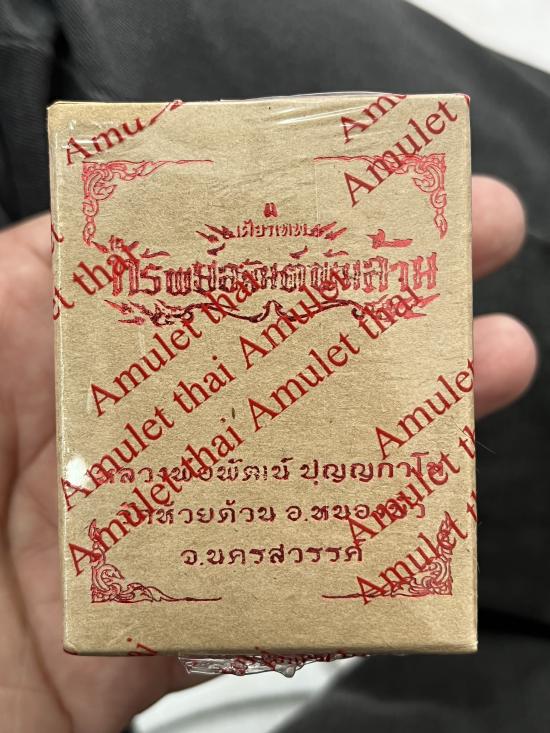 เศียรเทพ
ทรัพย์อนันต์พันล้าน
หลวงพ่อพัฒน์ ปุญญกาโม
วัดห้วยด้วน อ.หนองบัว
จ.นครสวรรค์
Amulet
Amulet
Amulet thai Amulet
Amulet thai Amulet thai
Amulet thai
Amulet thai